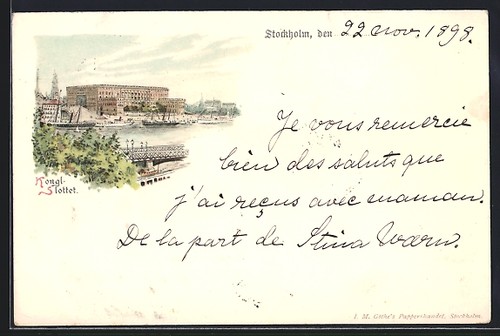 Stockholm, den 22 nov. 1898.
Je vous remercie
bien des saluts que
j'ai reçus avec maman.
De la part de Stina Warn.
Kongl.
Slottet.
I. M. Göthe's Pappershandel, Stockholm.